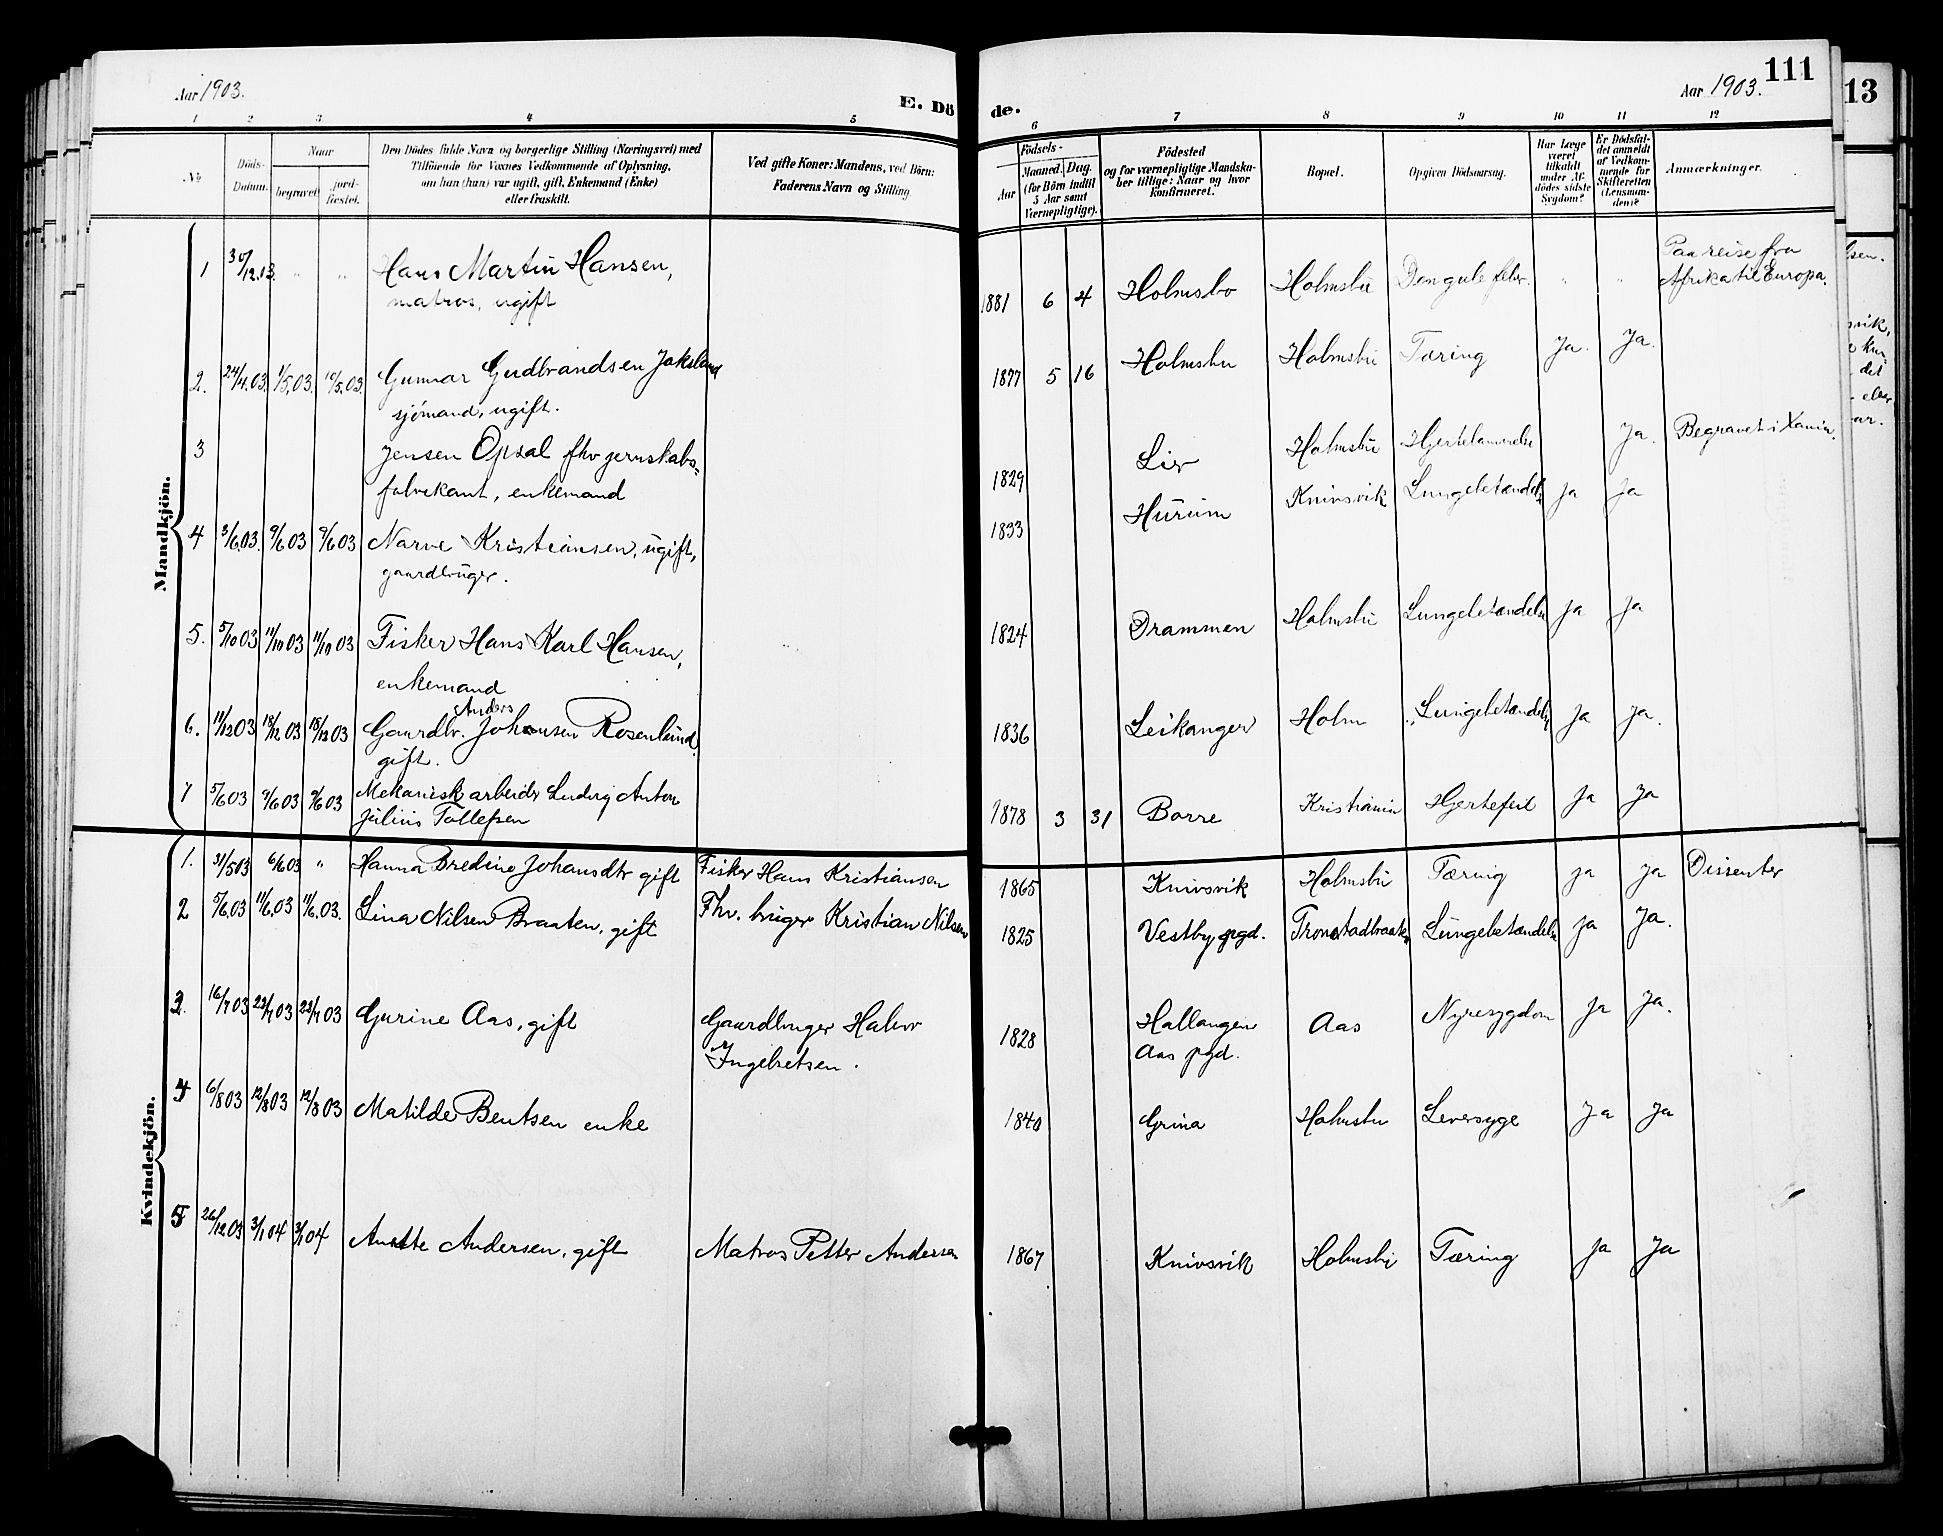 Aar 1903.
E. Dö
1 2 3 4 5
No
Döds-Datum.
Naar
begravet.
jord-fæstet.
Den Dödes fulde Navn og borgerlige Stilling (Næringsvei) med
Tilföiende for Voxnes Vedkommende af Oplysning,
om han (hun) var ugift, gift, Enkemand (Enke)
eller fraskilt.
Ved gifte Koner: Mandens, ved Börn:
Faderens Navn og Stilling.
Mandkjön.
1 30/12.03. " " Hans Martin Hansen,
matros, ugift
2. 24/4.03. 1/5.03. 10/5.03. Gunnar Gudbrandsen Jaksland
sjömand, ugift.
3 Jensen Opsal fhv jernskabs=
fabrikant, enkemand
4 3/6.03. 9/6 03 9/6 03 Narve Kristiansen, ugift,
gaardbruger.
5. 5/10 03 11/10 03 11/10 03 Fisker Hans Karl Hansen,
enkemand
6. 11/12 03 18/12 03 18/12 03 Gaardbr. Anders Johansen Rosenlund
gift.
7 5/6 03 9/6 03 9/6 03 Mekanisk arbeider Ludvig Anton
Julius Tollefsen
Kvindekjön.
1. 31/5 03 6/6 03 " Hanna Bredine Johansdtr gift Fisker Hans Kristiansen
2 5/6.03 11/6.03 11/6.03. Lina Nilsen Braaten, gift Fhv. bruger Kristian Nilsen
3. 16/7 03 22/7 03 22/7 03 Gurine Aas, gift Gaardbruger Halvor
Ingebretsen.
4 6/8 03 12/8 03 12/8 03 Matilde Bentsen enke
5 26/12 03 3/1 04 3/1 04 Anette Andersen, gift Matros Petter Andersen
de.
Aar 1903.
111
6 7 8 9 10 11 12
Födsels-
Aar
Maaned. Dag.
(for Börn indtil
5 Aar samt
Værnepligtige).
Födested
og for værnepligtige Mandska-
ber tillige: Naar og hvor
konfirmeret.
Bopæl.
Opgiven Dödsaarsag.
Har Læge
været
tilkaldt
under Af-
dödes sidste
Sygdom?
Er Dödsfal-
det anmeldt
af Vedkom-
mende for
Skifteretten
(Lensman-
den)?
Anmærkninger.
1881 6 4 Holmsbo Holmsbu Den gule feber. " " Paa reise fra
Afrika til Europa.
1877 5 16 Holmsbu Holmsbu Tæring Ja. Ja.
1829 Lier Holmsbu Hjertelammelse Ja. Begravet i Xania.
1833 Hurum Knivsvik Lungebetændelse Ja Ja
1824 Drammen Holmsbu Lungebetændelse Ja Ja
1836 Leikanger Holm Lungebetændelse Ja Ja.
1878 3 31 Borre Kristiania Hjertefeil Ja Ja
1865 Knivsvik Holmsbu Tæring Ja Ja Dissenter
1825 Vestby pgd. Tronstadbraaten Lungebetændelse Ja Ja.
1828 Hallangen
Aas pgd. Aas Nyresygdom Ja Ja.
1840 Grina Holmsbu Leversyge Ja Ja
1867 Knivsvik Holmsbu Tæring Ja Ja
13